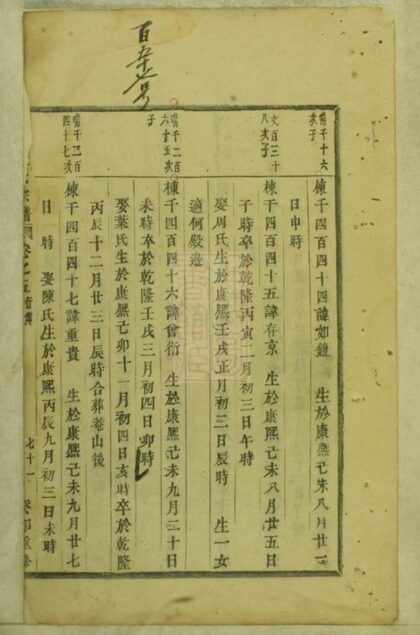 棟千四百四十四諱如鐘 生於康熙己未八月廿二
日申時
棟千四百四十五諱存京 生於康熙己未八月廿五日
子時卒於乾隆丙寅二月初三日午時
娶周氏生於康熙壬戌正月初三日辰時 生一女
適何殿邉
棟千四百四十六諱曾衍 生於康熙己未九月三十日
未時卒於乾隆壬戌三月初四日卯時
娶葉氏生於康熙己卯十一月初四亥時卒於乾隆
丙辰十二月廿三日辰時合葬巷山後
棟千四百四十七諱重貴 生於康熙己未九月廿七
日 時 娶陳氏生於康熙丙辰九月初三日未時
千十六
次子
文百三十
八次子
千二百
六十五次
子
千一百
四十七次
七十一